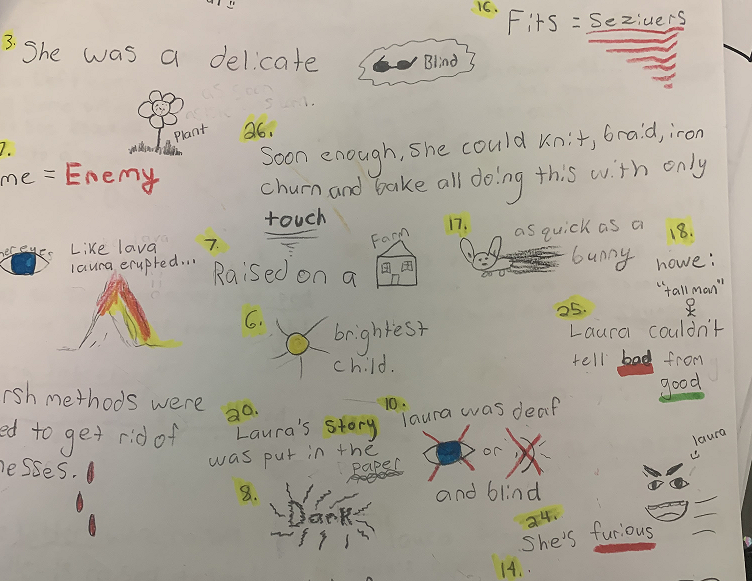 16.
Fits = Seziuers
3. She was a delicate
Blind
plant
26.
Soon enough, she could knit, braid, iron
churn and bake all doing this with only
touch
7.
me = Enemy
her eyes
Like lava
laura erupted...
7.
Raised on a
Farm
17.
as quick as a
bunny
18.
howe:
"tall man"
6.
brightest
child.
25.
Laura couldn't
tell bad from
good
rsh methods were
ed to get rid of
esses.
20.
Laura's story
was put in the
paper
10.
laura was deaf
or
and blind
8.
Dark
laura
24.
She's furious
14.